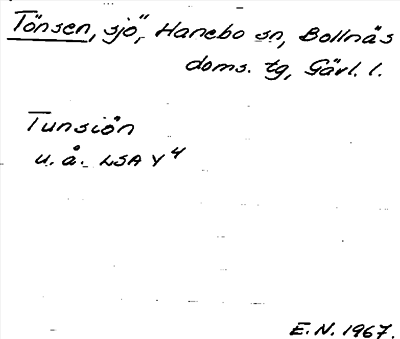 Tönsen, sjö, Hanebo sn, Bollnäs
doms. tg, Gävl. l.
Tunsiön
u. å. LSA Y4
E.N. 1967.